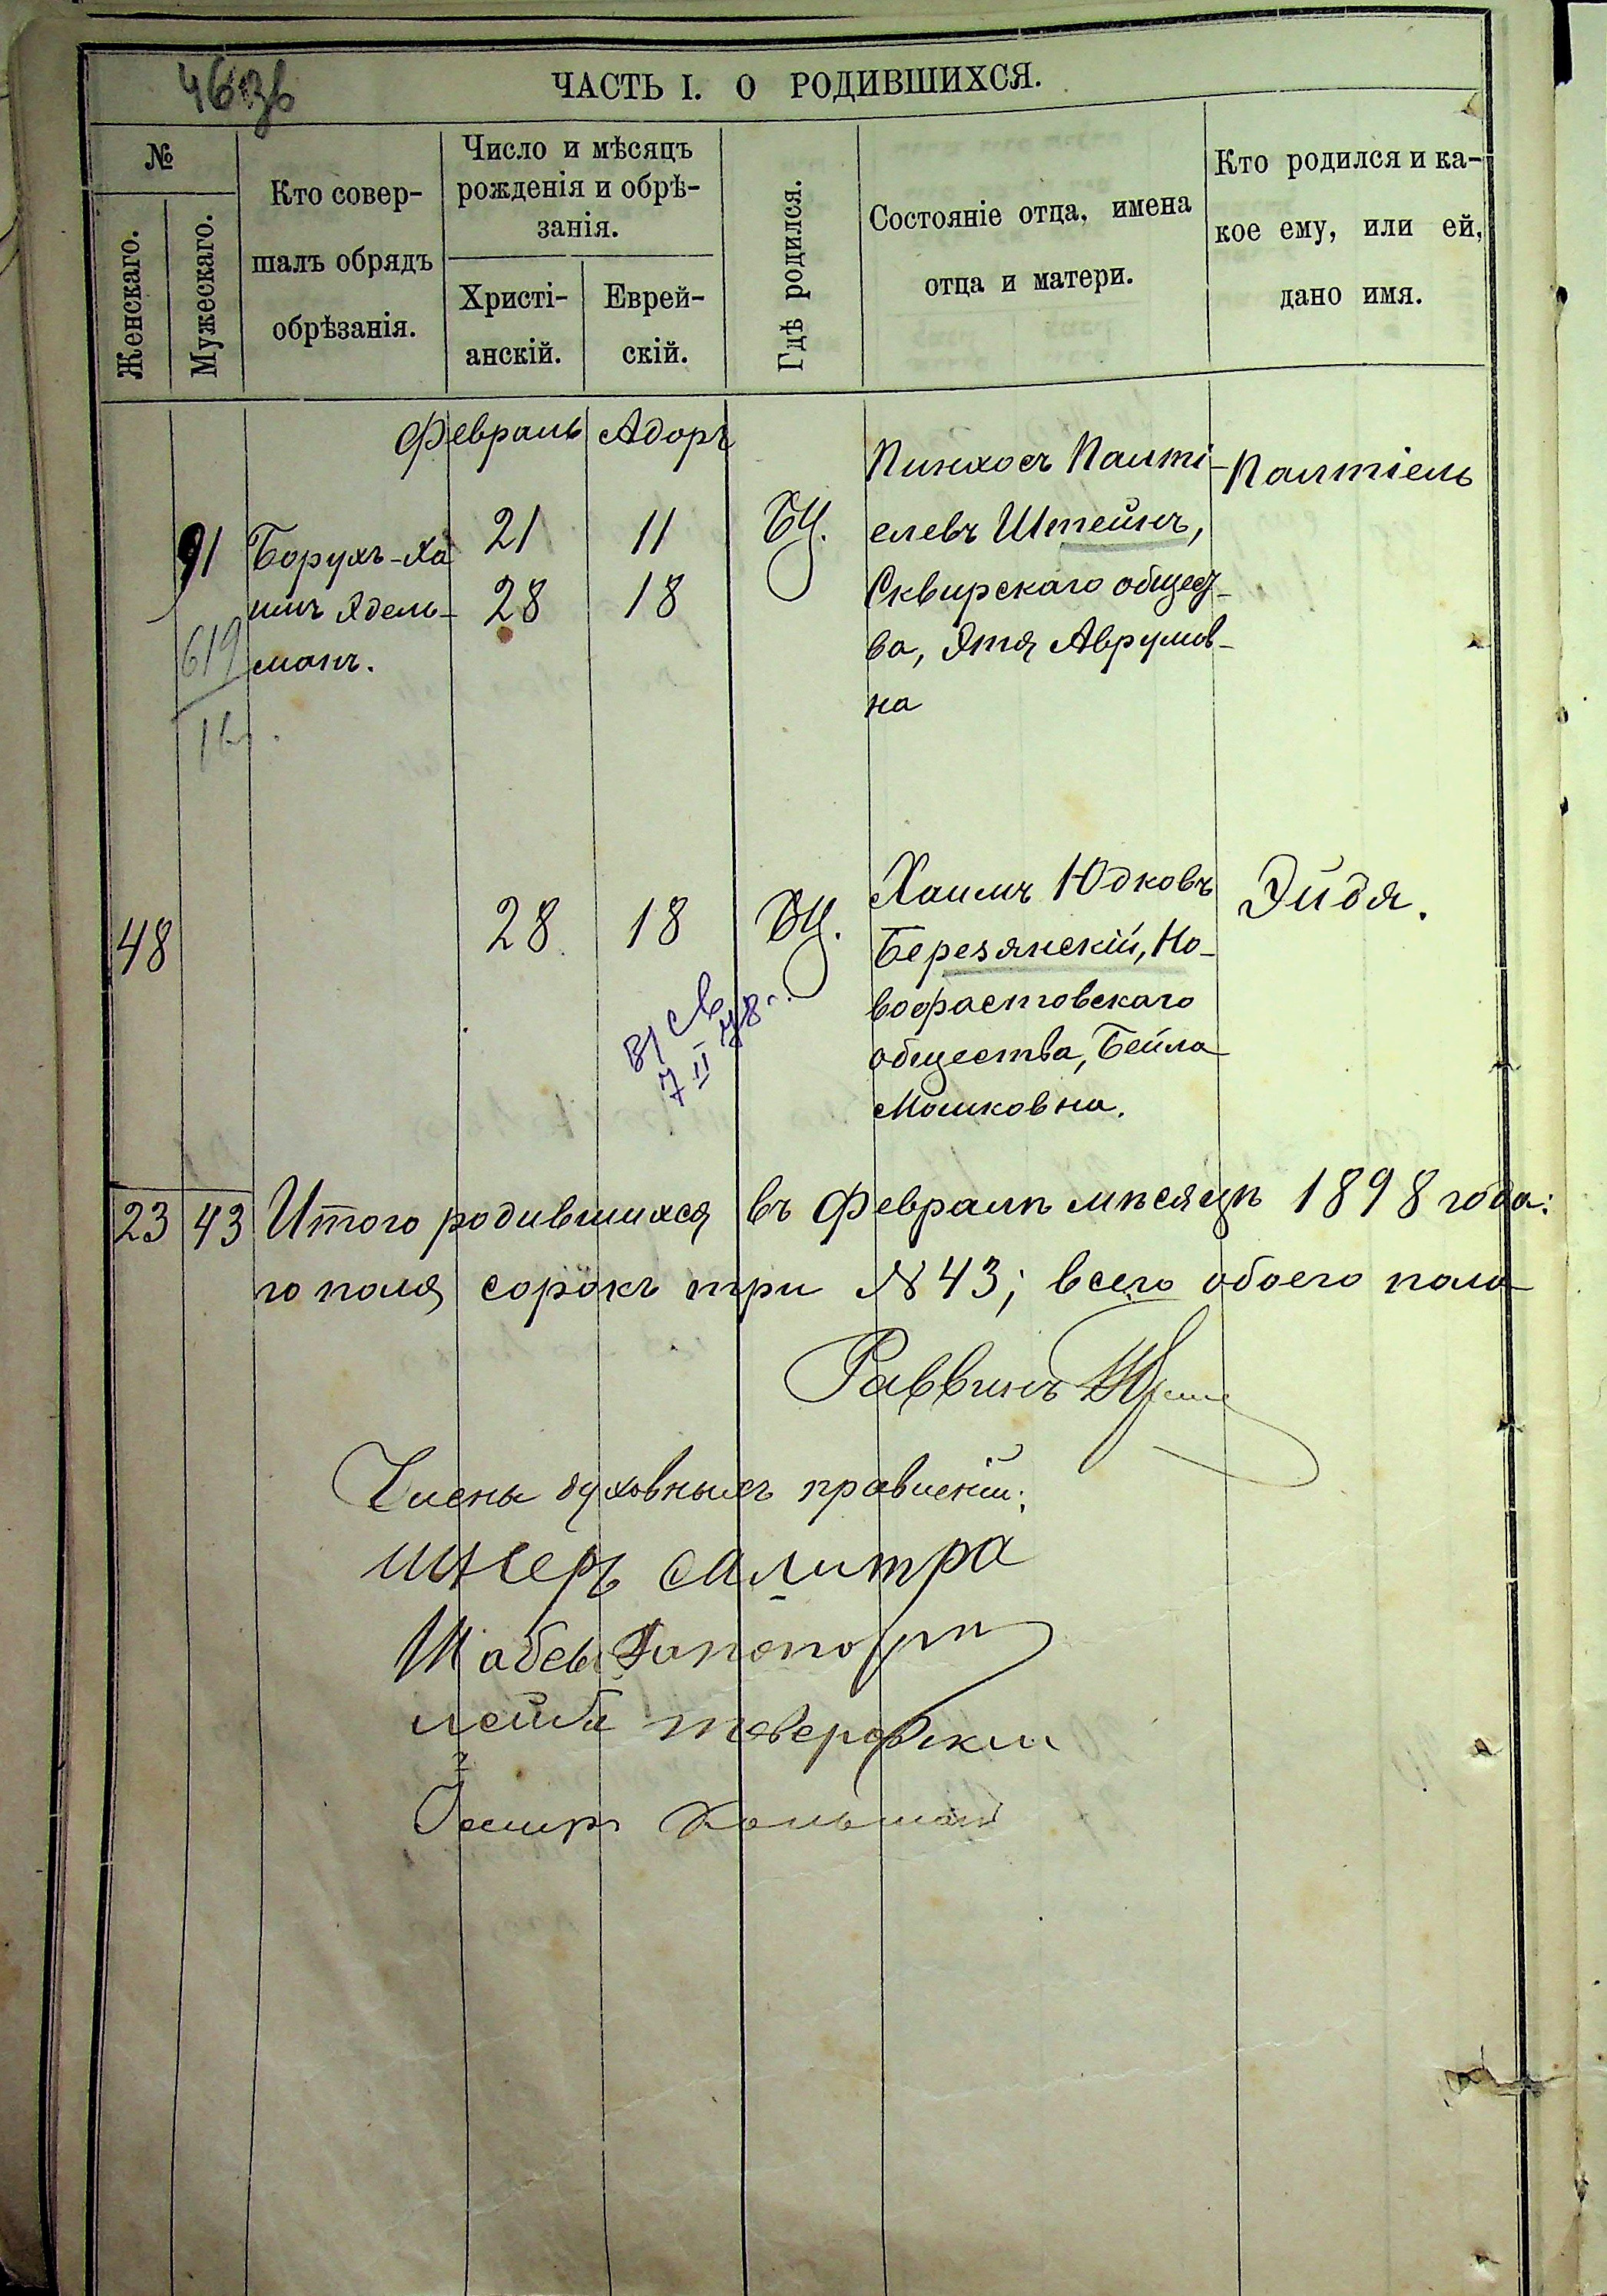 46 зв
ЧАСТЬ I. О РОДИВШИХСЯ.
№
Женскаго.
Мужескаго.
Кто совер-
шалъ обрядъ
обрѣзанія.
Число и мѣсяцъ
рожденія и обрѣ-
занія.
Христі-
анскій.
Еврей-
скій.
Гдѣ родился.
Состояніе отца, имена
отца и матери.
Кто родился и ка-
кое ему, или ей,
дано имя.
Февраль Адоръ
91
Борухъ-Ха
имъ Эдель-
манъ.
21 11
28 18
БЦ.
Пинхосъ Палті-
елевъ Штейнъ,
Сквирскаго общест-
ва, Этя Аврумов-
на
Палтіель
619
48
28 18
БЦ.
Хаимъ Юдковъ
Березянскій, Но-
вофастовскаго
общества, Бейла
Мошковна.
Эйдя.
7 II 98 г.
23 43 Итого родившихся въ Февралѣ мѣсяцѣ 1898 года:
го пола сорокъ три N 43; всего обоего пола
Раввинъ
Члены духовныхъ правленій:
салитра
Шабсь Рапопортъ
лейба тверскии